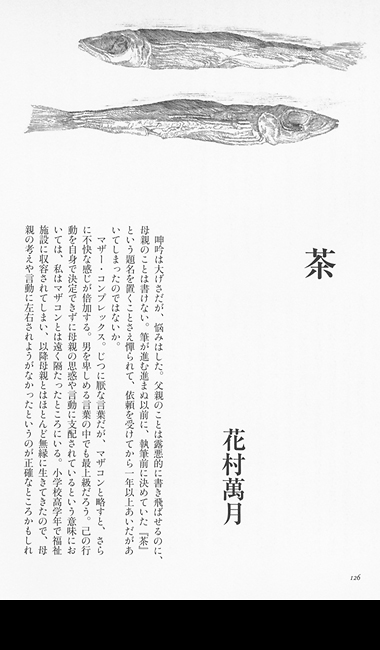 茶
花村萬月
呻吟は大げさだが、悩みはした。父親のことは露悪的に書き飛ばせるのに、
母親のことは書けない。筆が進む進まぬ以前に、執筆前に決めていた『茶』
という題名を置くことさえ憚られて、依頼を受けてから一年以上あいだがあ
いてしまったのではないか。
マザー・コンプレックス。じつに厭な言葉だが、マザコンと略すと、さら
に不快な感じが倍加する。男を卑しめる言葉の中でも最上級だろう。己の行
動を自身で決定できずに母親の思惑や言動に支配されているという意味にお
いては、私はマザコンとは遠く隔たったところにいる。小学校高学年で福祉
施設に収容されてしまい、以降母親とはほとんど無縁に生きてきたので、母
親の考えや言動に左右されようがなかったというのが正確なところかもしれ
126